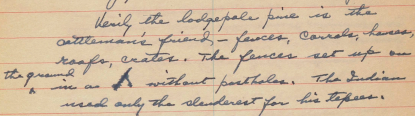 Verily the lodgepole pine is the
cattleman's friend – fences, corrals, houses,
roofs, crates. The fences set up on
the ground in an A without postholes. The Indian
used only the slenderest for his tepees.